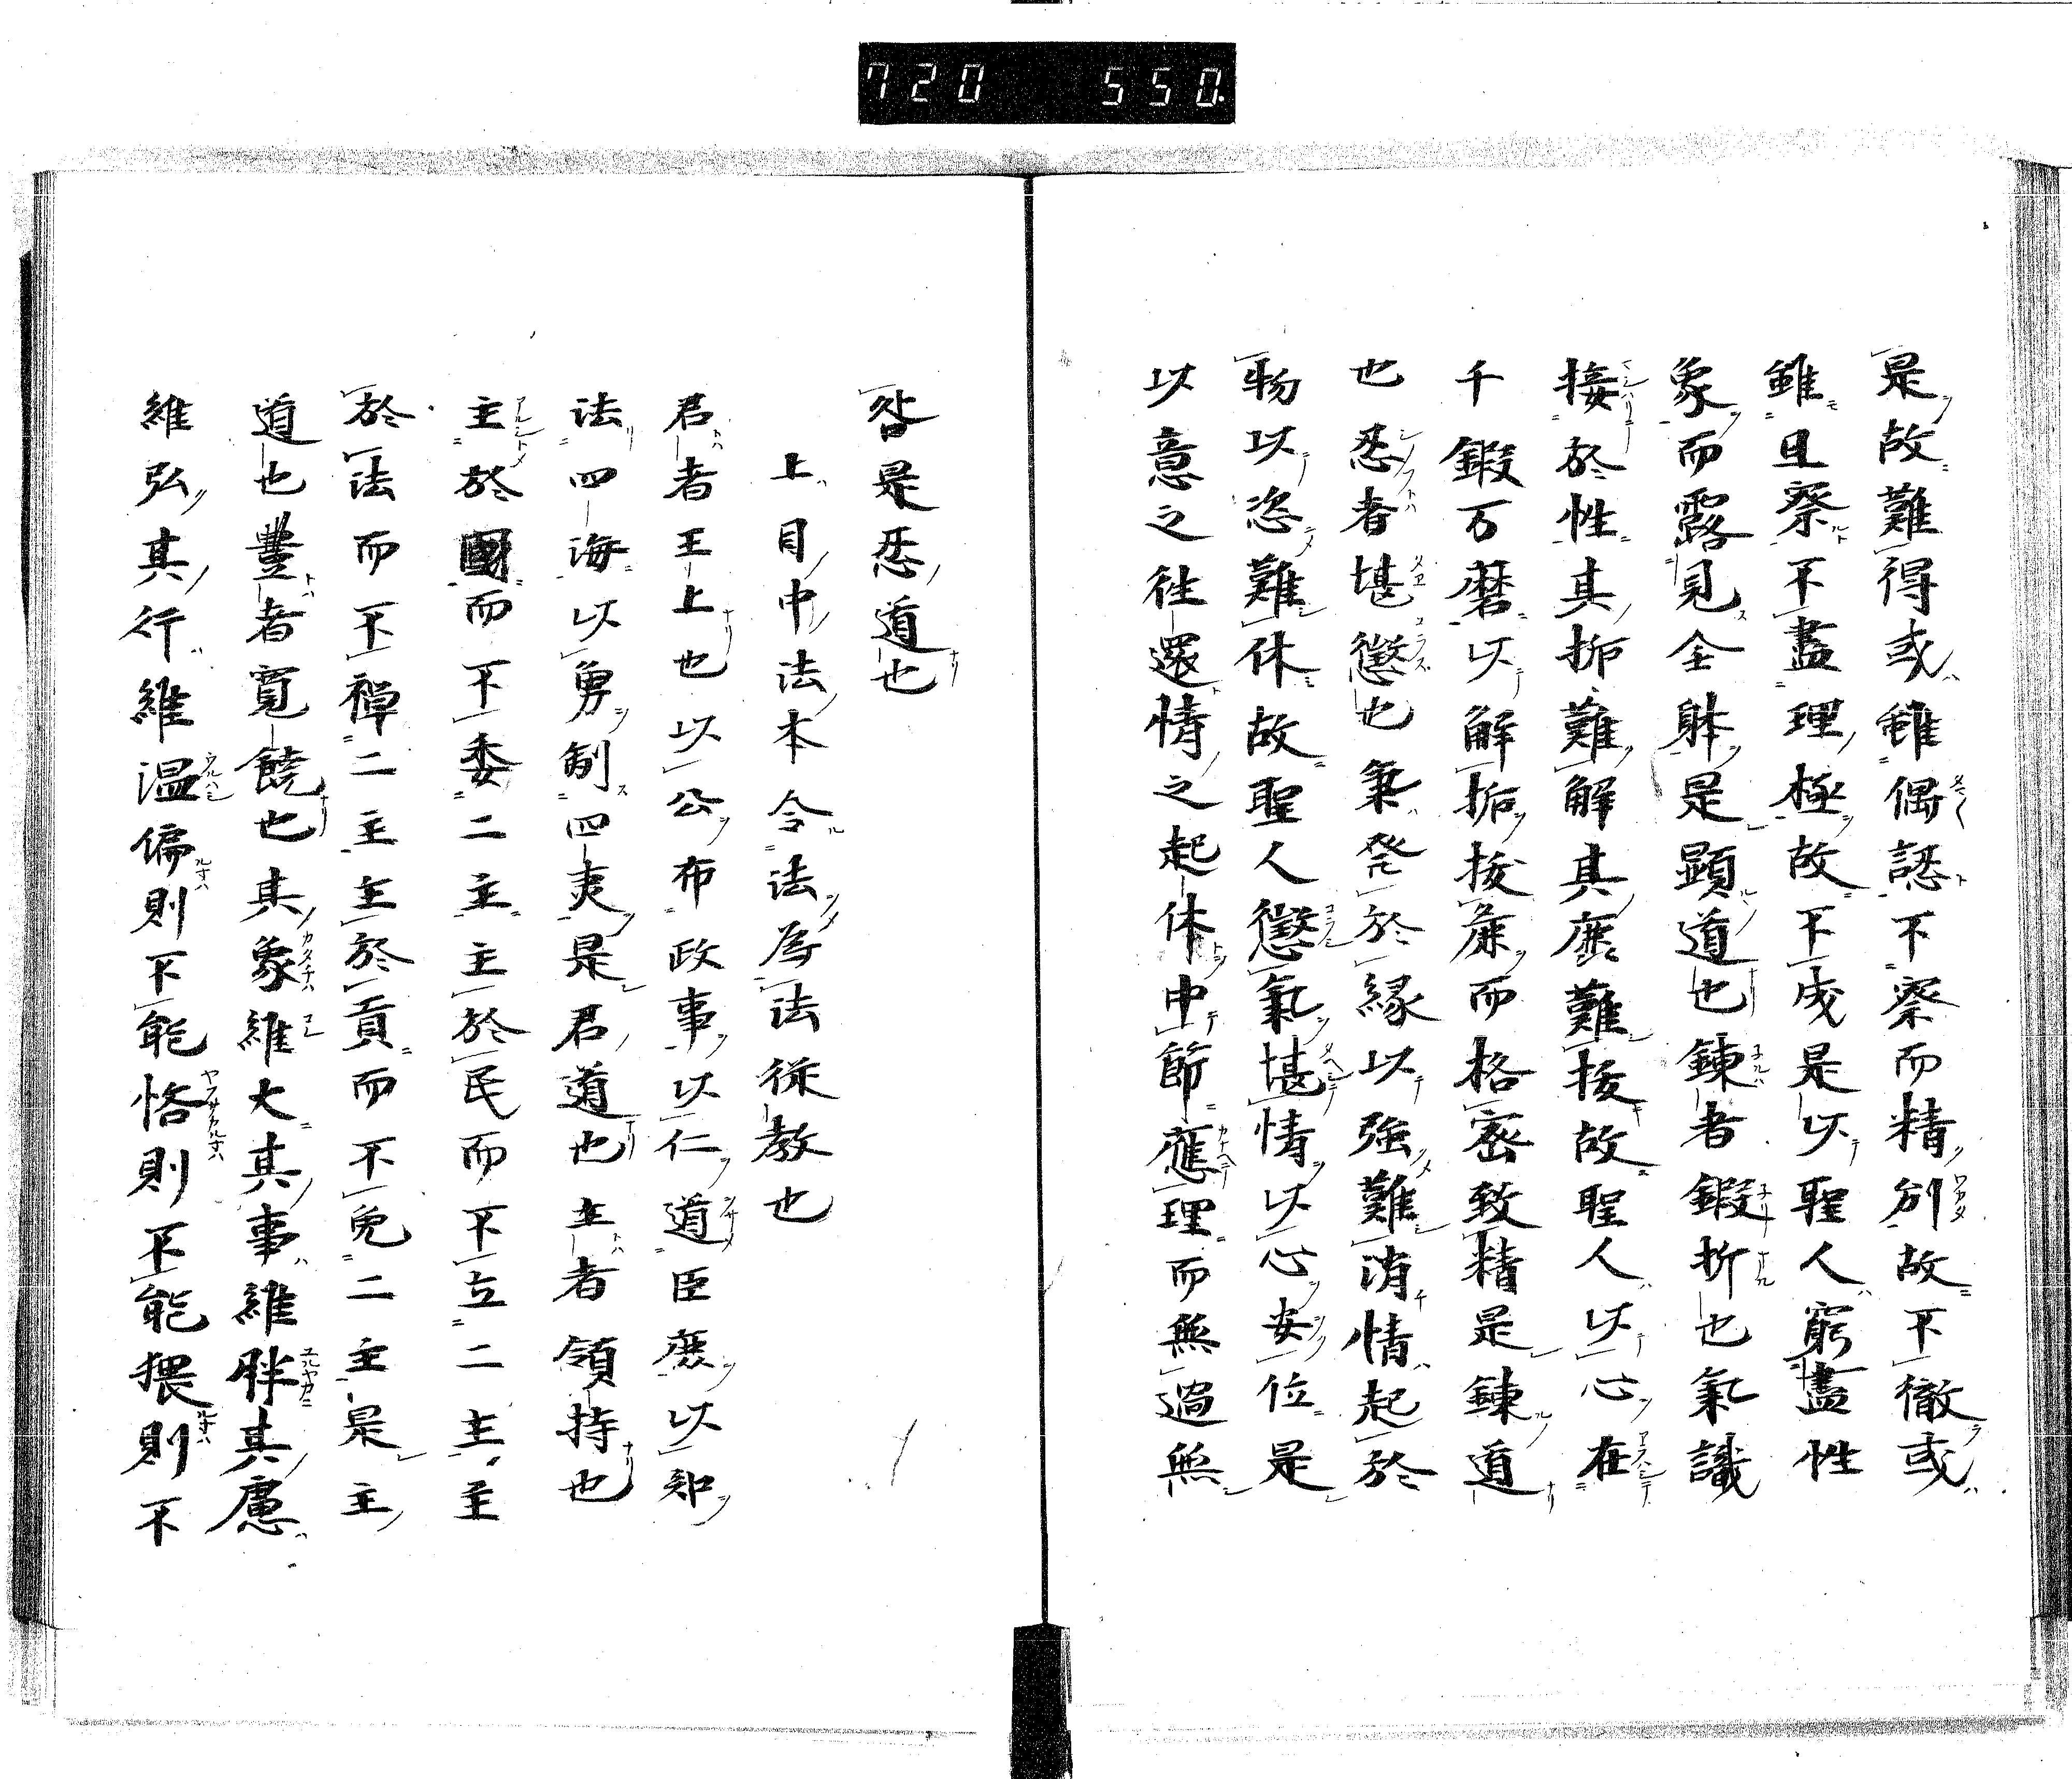 720 550.
是故難得或雖偶認不察而精別故不徹或
雖且察不盡理極故不成是以聖人窮盡性
象而露見全躰是顕道也錬者鍛折也氣識
接於性其垢難解其塵難接故聖人以心在
千鍛万磨以解垢接塵而格密致精是錬道
也忍者堪懲也氣発於縁以強難消情起於
物以恣難休故聖人懲氣堪情以心安位是
以意之往還情之起休中節應理而無過無
咎是忍道也
上目中法本令法為法徐教也
君者王上也以公布政事以仁道臣庶以知
法四海以勇制四夷是君道也主者領持也
主於國而不委二主主於民而不立二主主
於法而不禅二主主於貢而不免二主是主
道也豊者寛饒也其象維大其事維胖其慮
維弘其行維温偏則不能悋則不能猥則不